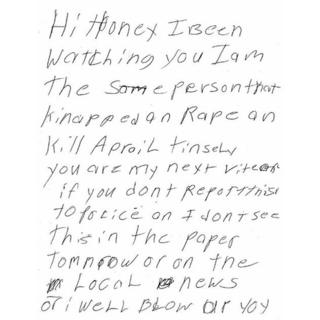 Hi Honey I Been
watching you I am
the same person that
kinapped an Rape an
kill Aproil tinsely
you are my next vitem
if you dont Report this
to police an I don't see
this in the paper
tomorrow or on the
Local news
or i well blow